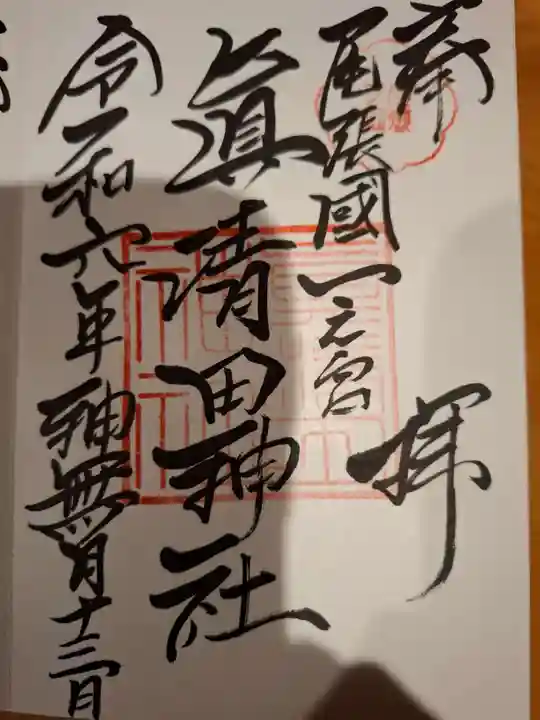 奉拝
尾張國一之宮
眞清田神社
令和六年神無月十三日